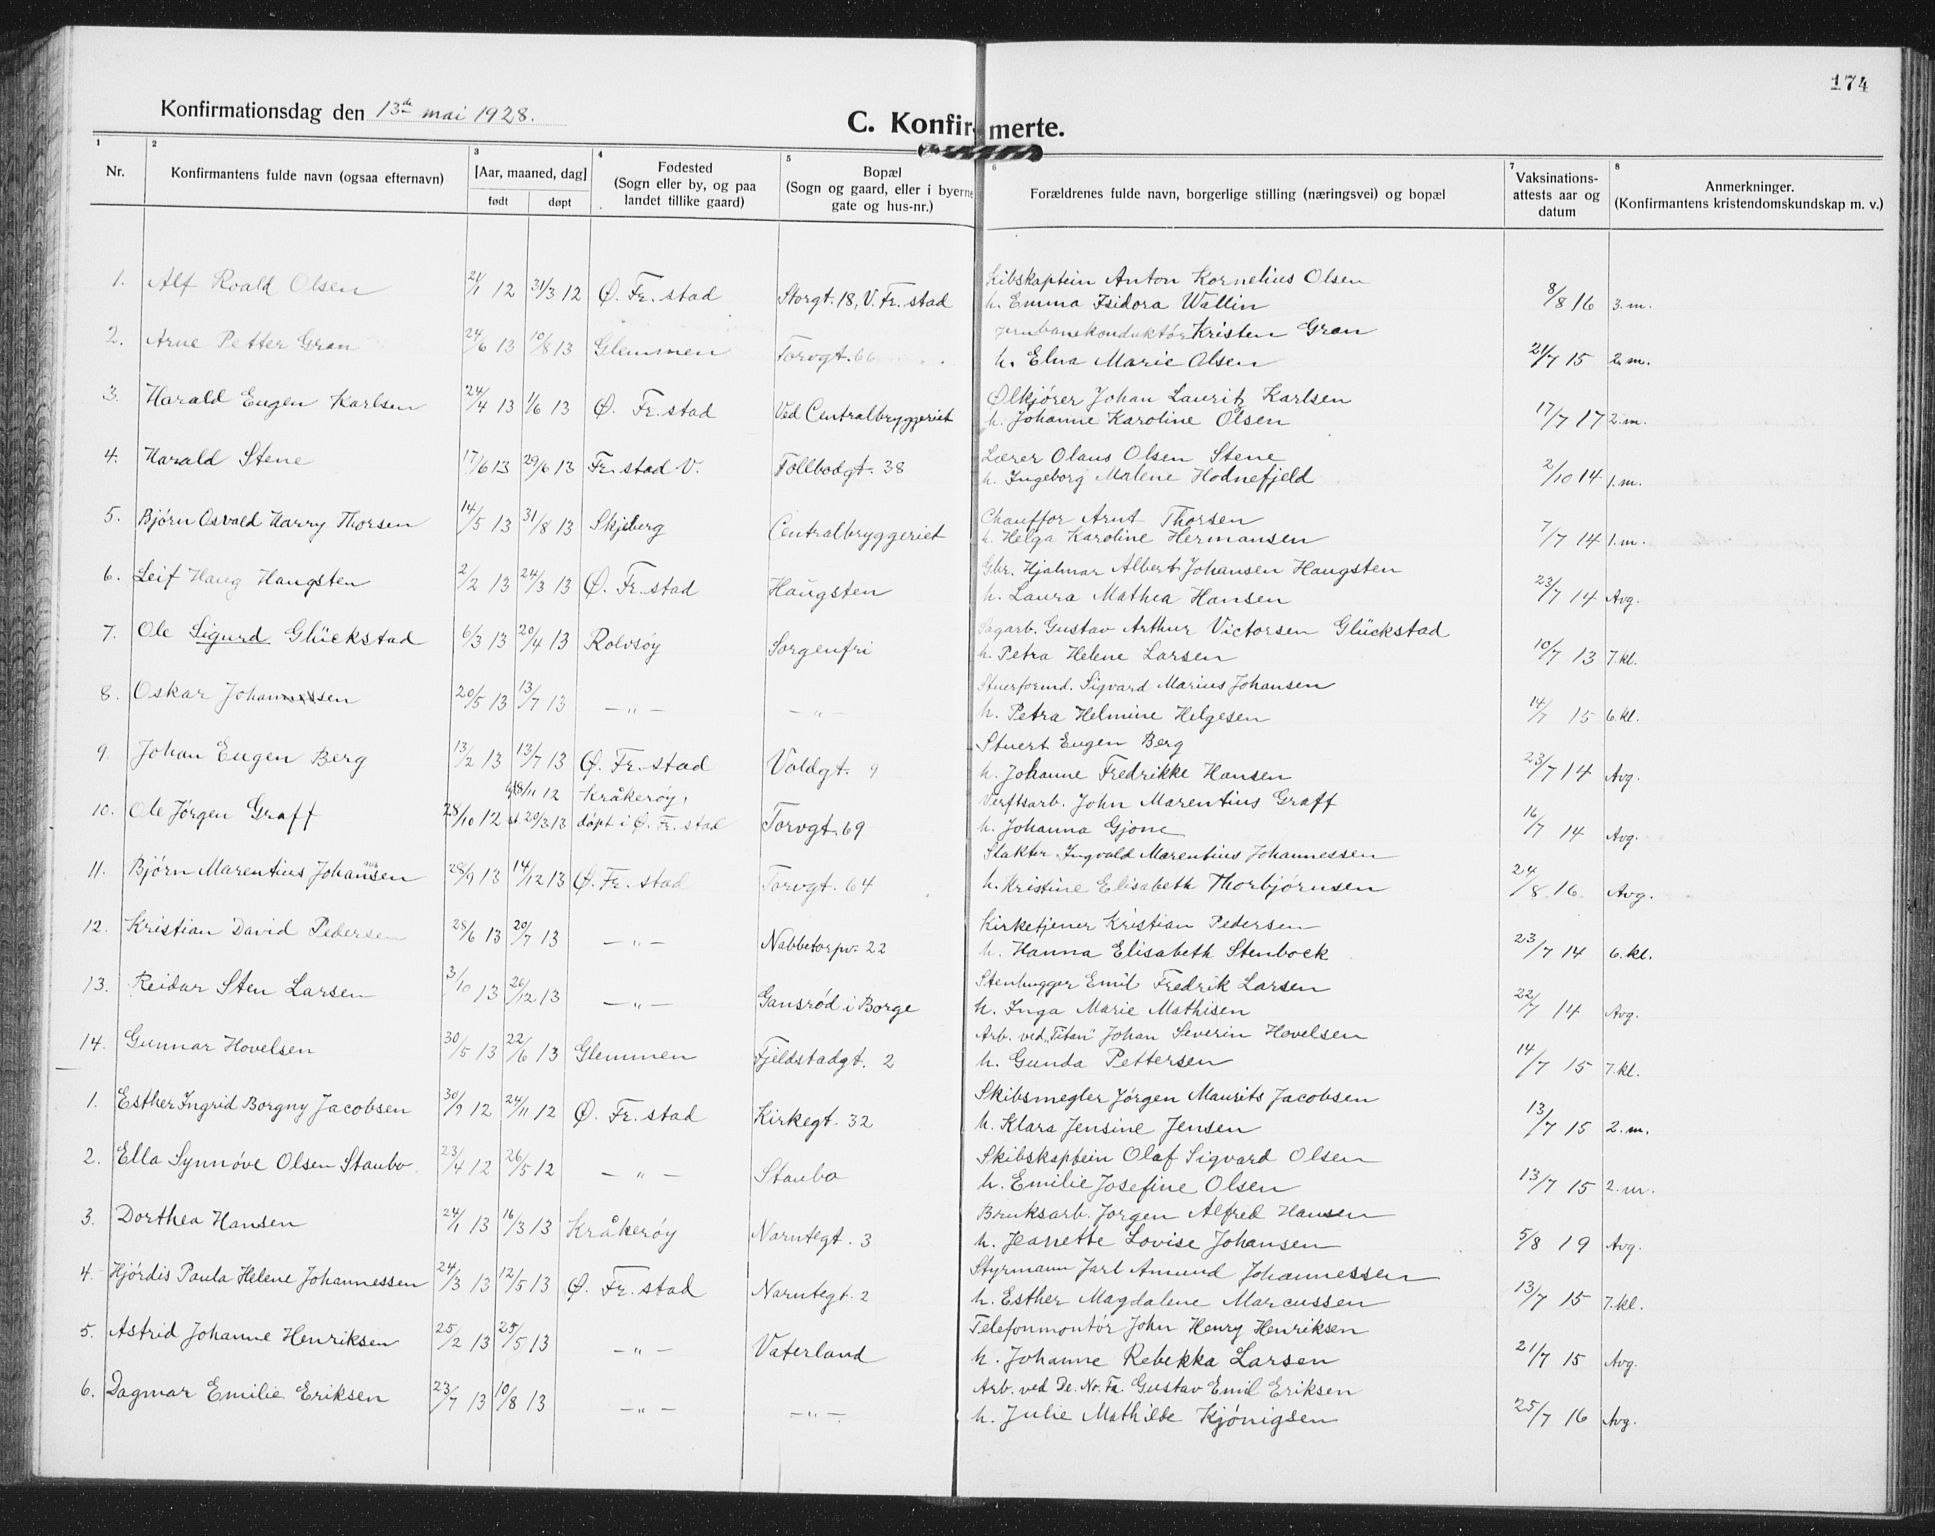 174
Konfirmationsdag den 13de mai 1928.
C. Konfirmerte.
1 2 3 4 5 6 7 8
Nr. Konfirmantens fulde navn (ogsaa efternavn) [Aar, maaned, dag] født døpt Fødested (Sogn eller by, og paa landet tillike gaard) Bopæl (Sogn og gaard, eller i byerne gate og hus-nr.) Forældrenes fulde navn, borgerlige stilling (næringsvei) og bopæl Vaksinations-attests aar og datum Anmerkninger. (Konfirmantens kristendomskundskap m. v.)
1. Alf Roald Olsen 21/1 12 31/3 12 Ø. Fr.stad Storgt. 18, V. Fr.stad Skibskaptein Anton Kornelius Olsen
h. Emma Isidora Wallin 8/8 16 3.m.
2. Arne Petter Gran 24/6 13 10/8 13 Glemmen Torvgt. 66 Jernbanekonduktør Kristen Gran
h. Elna Marie Olsen 21/7 15 2.m.
3. Harald Eugen Karlsen 24/4 13 1/6 13 Ø. Fr.stad Ved Centralbryggeriet Ølkjører Johan Lauritz Karlsen
h. Johanne Karoline Olsen 17/7 17 2.m.
4. Harald Stene 17/6 13 29/6 13 Fr.stad V. Tollbodgt. 38 Lærer Olaus Olsen Stene
h. Ingeborg Malene Hodnefjeld 2/10 14 1.m.
5. Bjørn Osvald Harry Thorsen 14/5 13 31/8 13 Skjeberg Centralbryggeriet Chauffør Arnt Thorsen
h. Helga Karoline Hermansen 7/7 14 1.m.
6. Leif Haug Haugsten 2/2 13 24/3 13 Ø. Fr.stad Haugsten Gbr. Hjalmar Albert Johansen Haugsten
h. Laura Mathea Hansen 23/7 14 Avg.
7. Ole Sigurd Glückstad 6/3 13 20/4 13 Rolvsøy Sorgenfri Sagarb. Gustav Arthur Victorsen Glückstad
h. Petra Helene Larsen 10/7 13 7.kl.
8. Oskar Johannessen 20/5 13 13/7 13 — „ — — „ — Stuerformd. Sigvard Marius Johansen
h. Petra Helmine Helgesen 14/7 15 6.kl.
9. Johan Eugen Berg 13/2 13 13/7 13 Ø. Fr.stad Voldgt. 9 Stuert Eugen Berg
h. Johanne Fredrikke Hansen 23/7 14 Avg.
10. Ole Jørgen Graff 28/10 12 28/11 12 st. 20/3 13 Kråkerøy, døpt i Ø. Fr.stad Torvgt. 69 Verftsarb. John Marentius Graff
h. Johanna Gjone 16/7 14 Avg.
11. Bjørn Marentius Johansen 28/9 13 14/12 13 Ø. Fr.stad Torvgt. 64 Slakter Ingvald Marentius Johannessen
h. Kristine Elisabeth Thorbjørnsen 24/8 16 Avg.
12. Kristian David Pedersen 28/6 13 20/7 13 — „ — Nabbetorpv. 22 Kirketjener Kristian Pedersen
h. Hanna Elisabeth Stenbock 23/7 14 6.kl.
13. Reidar Sten Larsen 3/10 13 26/12 13 — „ — Gansrød i Borge Stenhugger Emil Fredrik Larsen
h. Inga Marie Mathisen 22/7 14 Avg.
14. Gunnar Hovelsen 30/5 13 22/6 13 Glemmen Fjeldstadgt. 2 Arb. ved „Titan" Johan Severin Hovelsen
h. Gunda Pettersen 14/7 15 7.kl.
1. Esther Ingrid Borgny Jacobsen 30/9 12 24/11 12 Ø. Fr.stad Kirkegt. 32 Skibsmegler Jørgen Maurits Jacobsen
h. Klara Jensine Jensen 13/7 15 2.m.
2. Ella Synnøve Olsen Staubo 23/4 12 26/5 12 — „ — Staubo Skibskaptein Olaf Sigvard Olsen
h. Emilie Josefine Olsen 13/7 15 2.m.
3. Dorthea Hansen 24/1 13 16/3 13 Kråkerøy Narntegt. 3 Bruksarb. Jørgen Alfred Hansen
h. Jeanette Lovise Johansen 5/8 19 Avg.
4. Hjørdis Paula Helene Johannessen 24/3 13 12/5 13 Ø. Fr.stad Narntegt. 2 Styrmann Jarl Amund Johannessen
h. Esther Magdalene Marcussen 13/7 15 7.kl.
5. Astrid Johanne Henriksen 25/2 13 25/5 13 — „ — Vaterland Telefonmontør John Henry Henriksen
h. Johanne Rebekka Larsen 21/7 15 Avg.
6. Dagmar Emilie Eriksen 23/7 13 10/8 13 — „ — — „ — Arb. ved De. No. Fa. Gustav Emil Eriksen
h. Julie Mathilde Kjønigsen 25/7 16 Avg.